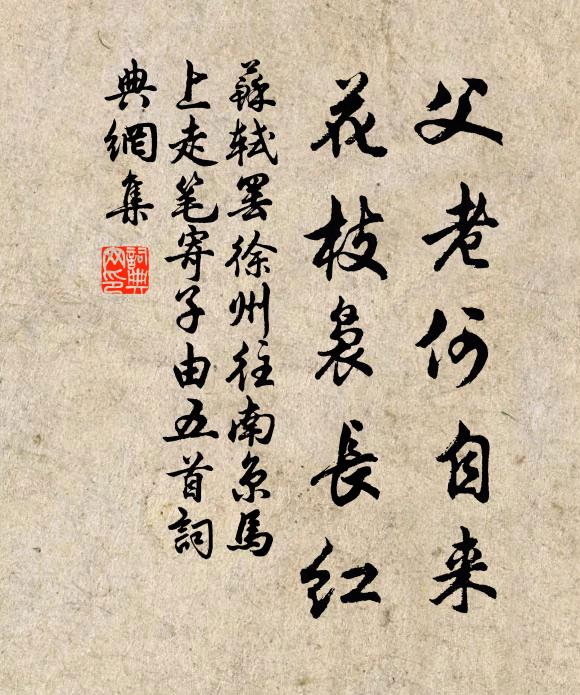 父老何自来
花枝袅長红
蘇軾罢徐州往南京馬
上走笔寄子由五首詞
典網集
詞典
网印